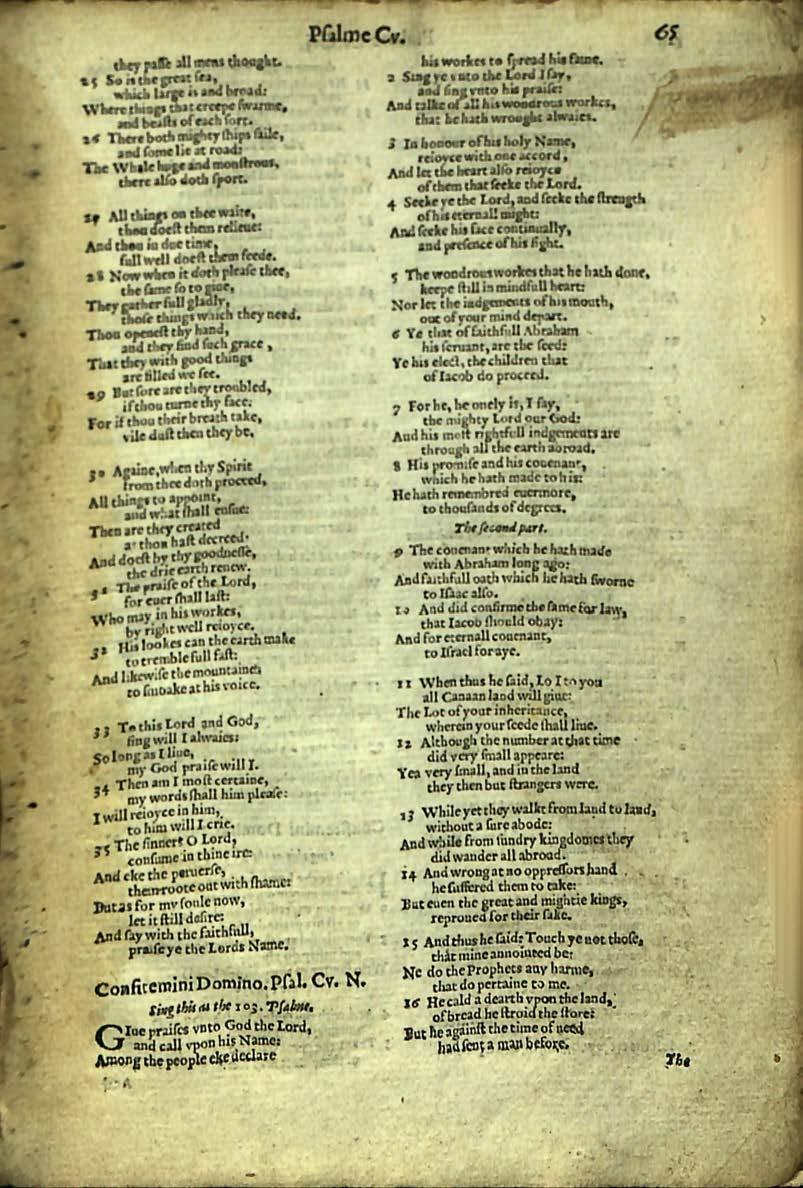 Pſalme Cv.
65
they paſſe all mens thought.
25 So is the great ſea,
which large is and broad:
Where things that creepe ſwarme,
and beaſts of each ſort.
26 There both mighty ſhips ſaile,
and ſome lie at road:
The Whale huge and monſtrous,
there alſo doth ſport.
27 All things on thee waite,
thou doeſt them relieue:
And thou in due time,
full well doeſt them feede.
28 Now when it doth pleaſe thee,
the ſame ſo to giue,
They gather full gladly,
thoſe things which they need.
Thou openeſt thy hand,
and they find ſuch grace,
That they with good things
are filled we ſee.
29 But ſore are they troubled,
if thou turne thy face:
For if thou their breath take,
vile duſt then they be.
30 Againe, when thy Spirit
from thee doth proceed,
All things to appoint,
and what ſhall enſue:
Then are they created
as thou haſt decreed.
And doeſt by thy goodneſſe,
the drie earth renew.
31 The praiſe of the Lord,
for euer ſhall laſt:
Who may in his workes,
by right well reioyce.
32 His lookes can the earth make
to tremble full faſt:
And likewiſe the mountaines
to ſmoake at his voice.
33 To this Lord and God,
ſing will I alwaies:
So long as I liue,
my God praiſe will I.
34 Then am I moſt certaine,
my words ſhall him pleaſe:
I will reioyce in him,
to him will I crie.
35 The ſinners O Lord,
conſume in thine ire:
And eke the peruerſe,
them roote out with ſhame:
But as for my ſoule now,
let it ſtill deſire:
And ſay with the faithfull,
praiſe ye the Lords Name.
Confitemini Domino. Pſal. Cv. N.
Sing this as the 103. Pſalme.
GIue praiſes vnto God the Lord,
and call vpon his Name:
Among the people eke declare
his workes to ſpread his fame.
2 Sing ye vnto the Lord I ſay,
and ſing vnto his praiſe:
And talke of all his wondrous workes,
that he hath wrought alwaies.
3 In honour of his holy Name,
reioyce with one accord,
And let the heart alſo reioyce
of them that ſeeke the Lord.
4 Seeke ye the Lord, and ſeeke the ſtrength
of his eternall might:
And ſeeke his face continually,
and preſence of his ſight.
5 The wondrous workes that he hath done,
keepe ſtill in mindfull heart:
Nor let the iudgements of his mouth,
out of your mind depart.
6 Ye that of faithfull Abraham
his ſeruant, are the ſeed:
Ye his elect, the children that
of Iacob do proceed.
7 For he, he onely is, I ſay,
the mighty Lord our God:
And his moſt rightfull iudgements are
through all the earth abroad.
8 His promiſe and his couenant,
which he hath made to his:
He hath remembred euermore,
to thouſands of degrees.
The ſecond part.
9 The couenant which he hath made
with Abraham long ago:
And faithfull oath which he hath ſworne
to Iſaac alſo.
10 And did confirme the ſame for law,
that Iacob ſhould obay:
And for eternall couenant,
to Iſrael for aye.
11 When thus he ſaid, Lo I to you
all Canaan land will giue:
The Lot of your inheritance,
wherein your ſeede ſhall liue.
12 Although the number at that time
did very ſmall appeare:
Yea very ſmall, and in the land
they then but ſtrangers were.
13 While yet they walkt from land to land,
without a ſure abode:
And while from ſundry kingdomes they
did wander all abroad.
14 And wrong at no oppreſſors hand
he ſuffered them to take:
But euen the great and mightie kings,
reproued for their ſake.
15 And thus he ſaid: Touch ye not thoſe,
that mine annointed be:
Ne do the Prophets any harme,
that do pertaine to me.
16 He cald a dearth vpon the land,
of bread he ſtroid the ſtore:
But he againſt the time of need
had ſent a man before.
The